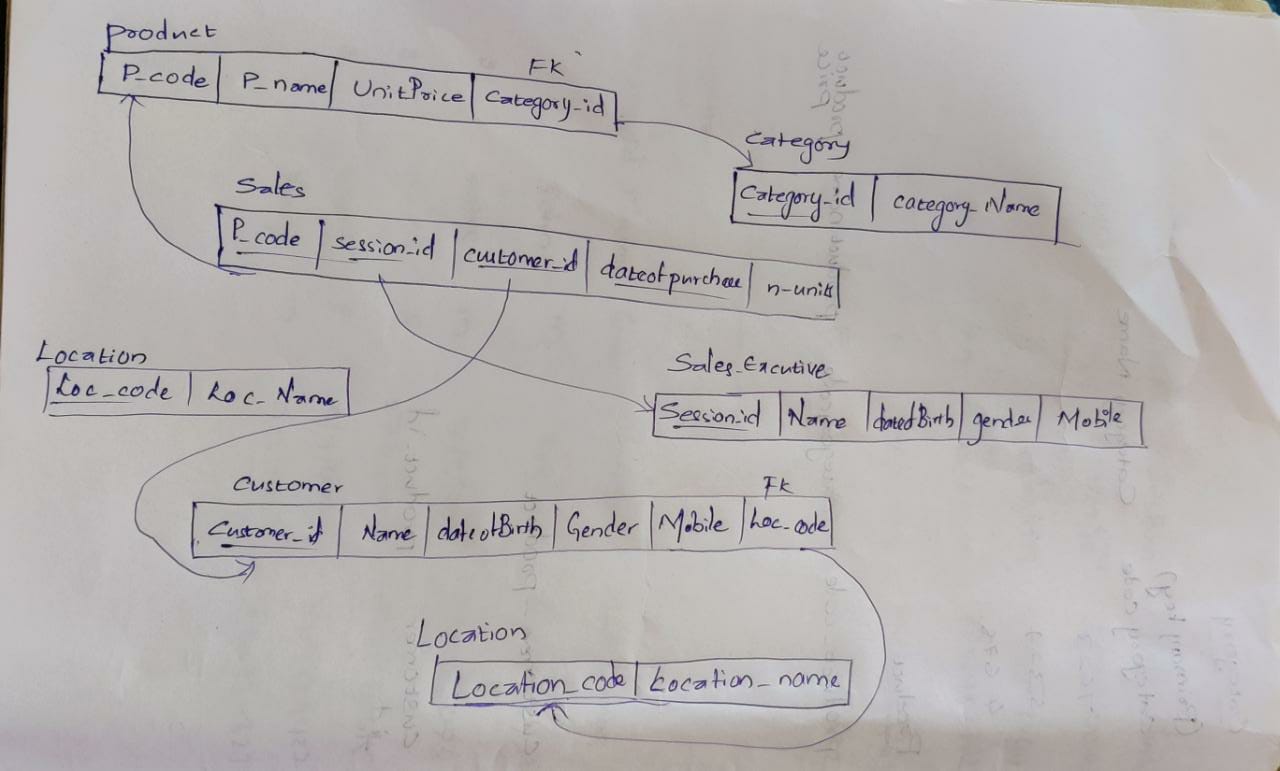 product
FK
P_code P_name UnitPrice Category_id
category
Category_id category_Name
Sales
P_code session_id customer_id dateofpurchase n-units
Location
Loc_code Loc_Name
Sales_Excutive
Session_id Name dateofBirth gender Mobile
Customer
FK
Customer_id Name dateofBirth Gender Mobile Loc_code
Location
Location_code Location_name